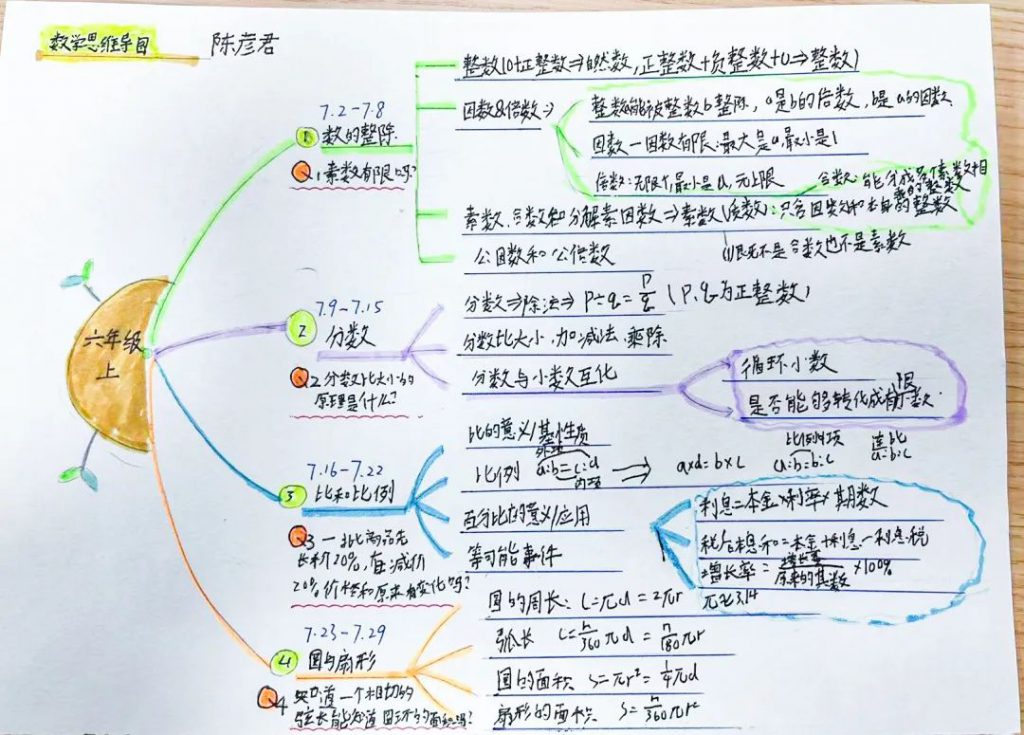 数学思维导图
陈彦君
六年级
上
7.2-7.8
① 数的整除
Q1 素数有限吗?
整数(0+正整数⇒自然数,正整数+负整数+0⇒整数)
因数&倍数⇒
整数a能被整数b整除, a是b的倍数, b是a的因数
因数一因数有限:最大是a,最小是1
倍数:无限个,最小是a,无上限
合数:能分成多个素数相
素数、合数和分解素因数⇒素数(质数):只含因数1和本身的整数
1既不是合数也不是素数
公因数和公倍数
7.9-7.15
② 分数
Q2 分数比大小的
原理是什么?
分数⇒除法⇒p÷q=p/q (p、q为正整数)
分数比大小、加减法、乘除
分数与小数互化
循环小数
是否能够转化成有限小数
7.16-7.22
③ 比和比例
Q3 一批商品先
长价20%,在减价
20%价格和原来有变化吗?
比的意义/基本性质
外项
比例 a:b=c:d → a×d=b×c
内项
比例中项
a:b=b:c
连比
a:b:c
百分比的意义/应用
等可能事件
利息=本金×利率×期数
税后本息和=本金+利息-利息税
增长率=增长量/原来的基数×100%
π≈3.14
7.23-7.29
④ 圆与扇形
Q4 知道一个相切的
弦长能知道圆环的面积吗?
圆的周长:C=πd=2πr
弧长 l=n/360πd=n/180πr
圆的面积 S=πr²=1/4πd
扇形的面积 S=n/360πr²